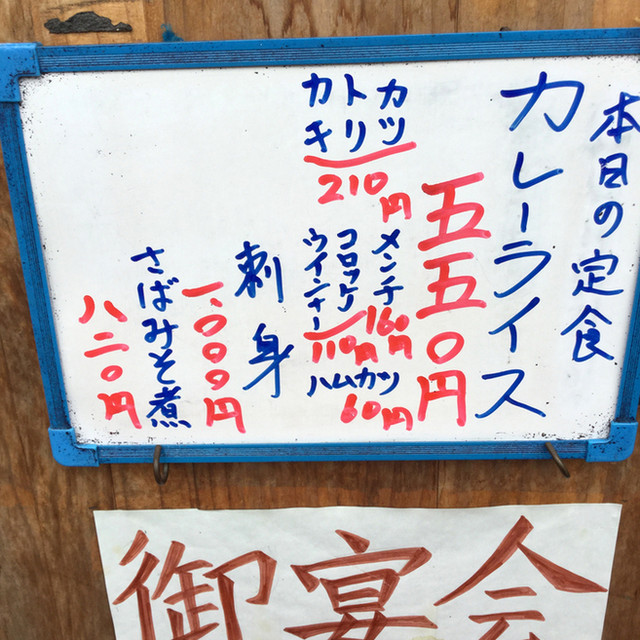 本日の定食
カレーライス
五五〇円
カツ
トリ
カキ
210円
メンチ
160円
コロッケ
ウインナー
110円
ハムカツ
60円
刺身
一、〇〇〇円
さばみそ煮
八二〇円
御宴会